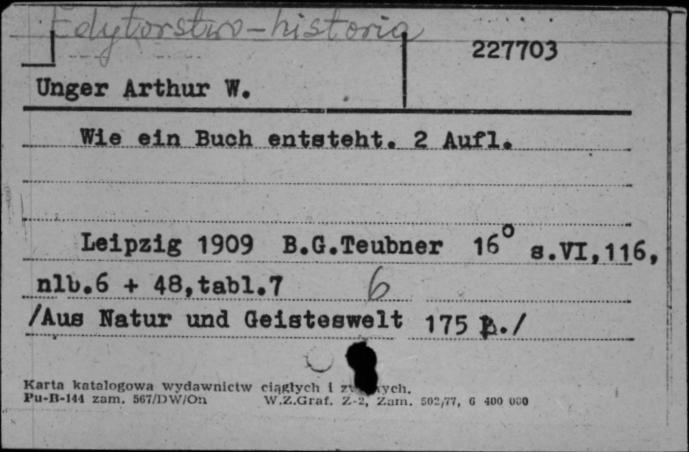 Edytorstwo - historia
227703
Unger Arthur W.
Wie ein Buch entsteht. 2 Aufl.
Leipzig 1909 B.G.Teubner 16° s.VI,116,
nlb.6 + 48,tabl.7 6
/Aus Natur und Geisteswelt 175 B./
Karta katalogowa wydawnictw ciągłych i
Pu-B-144 zam. 567/DW/On W.Z.Graf. Z-2, Zam. 502/77, 6 400 000